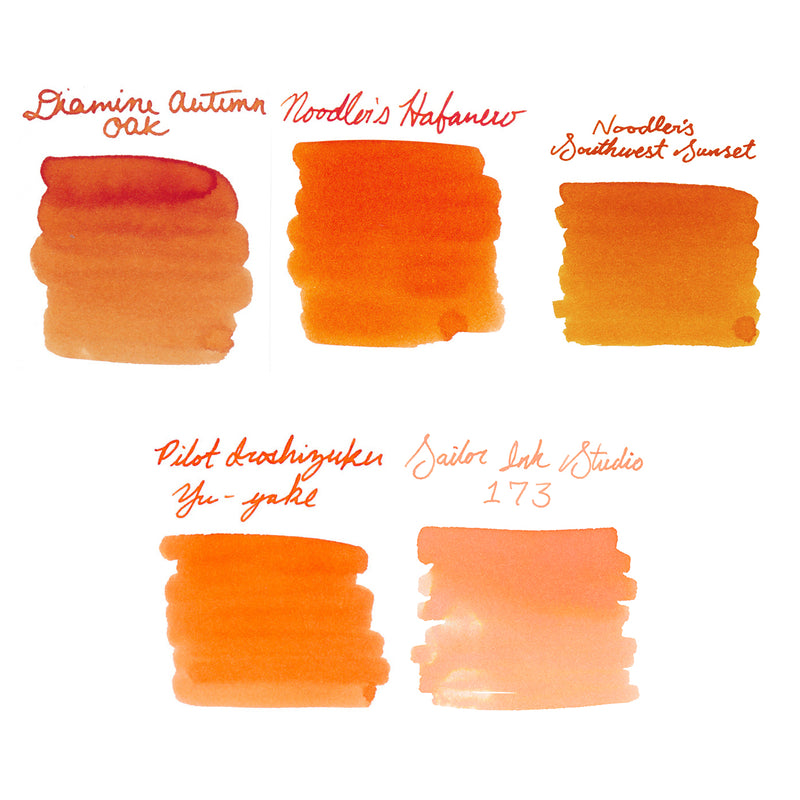 Diamine Autumn
Oak
Noodler's Habanero
Noodler's
Southwest Sunset
Pilot Iroshizuku
Yu-yake
Sailor Ink Studio
173